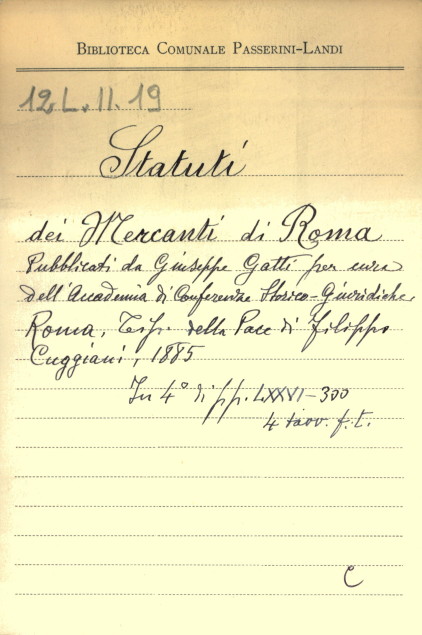 BIBLIOTECA COMUNALE PASSERINI-LANDI
12.L.II.19
Statuti
dei Mercanti di Roma
Pubblicati da Giuseppe Gatti per cura
dell'Accademia di Conferenze Storico-Giuridiche.
Roma, Tip. della Pace di Filippo
Cuggiani, 1885
In 4° di pp. LXXVI-300
4 tavv. f.t.
C